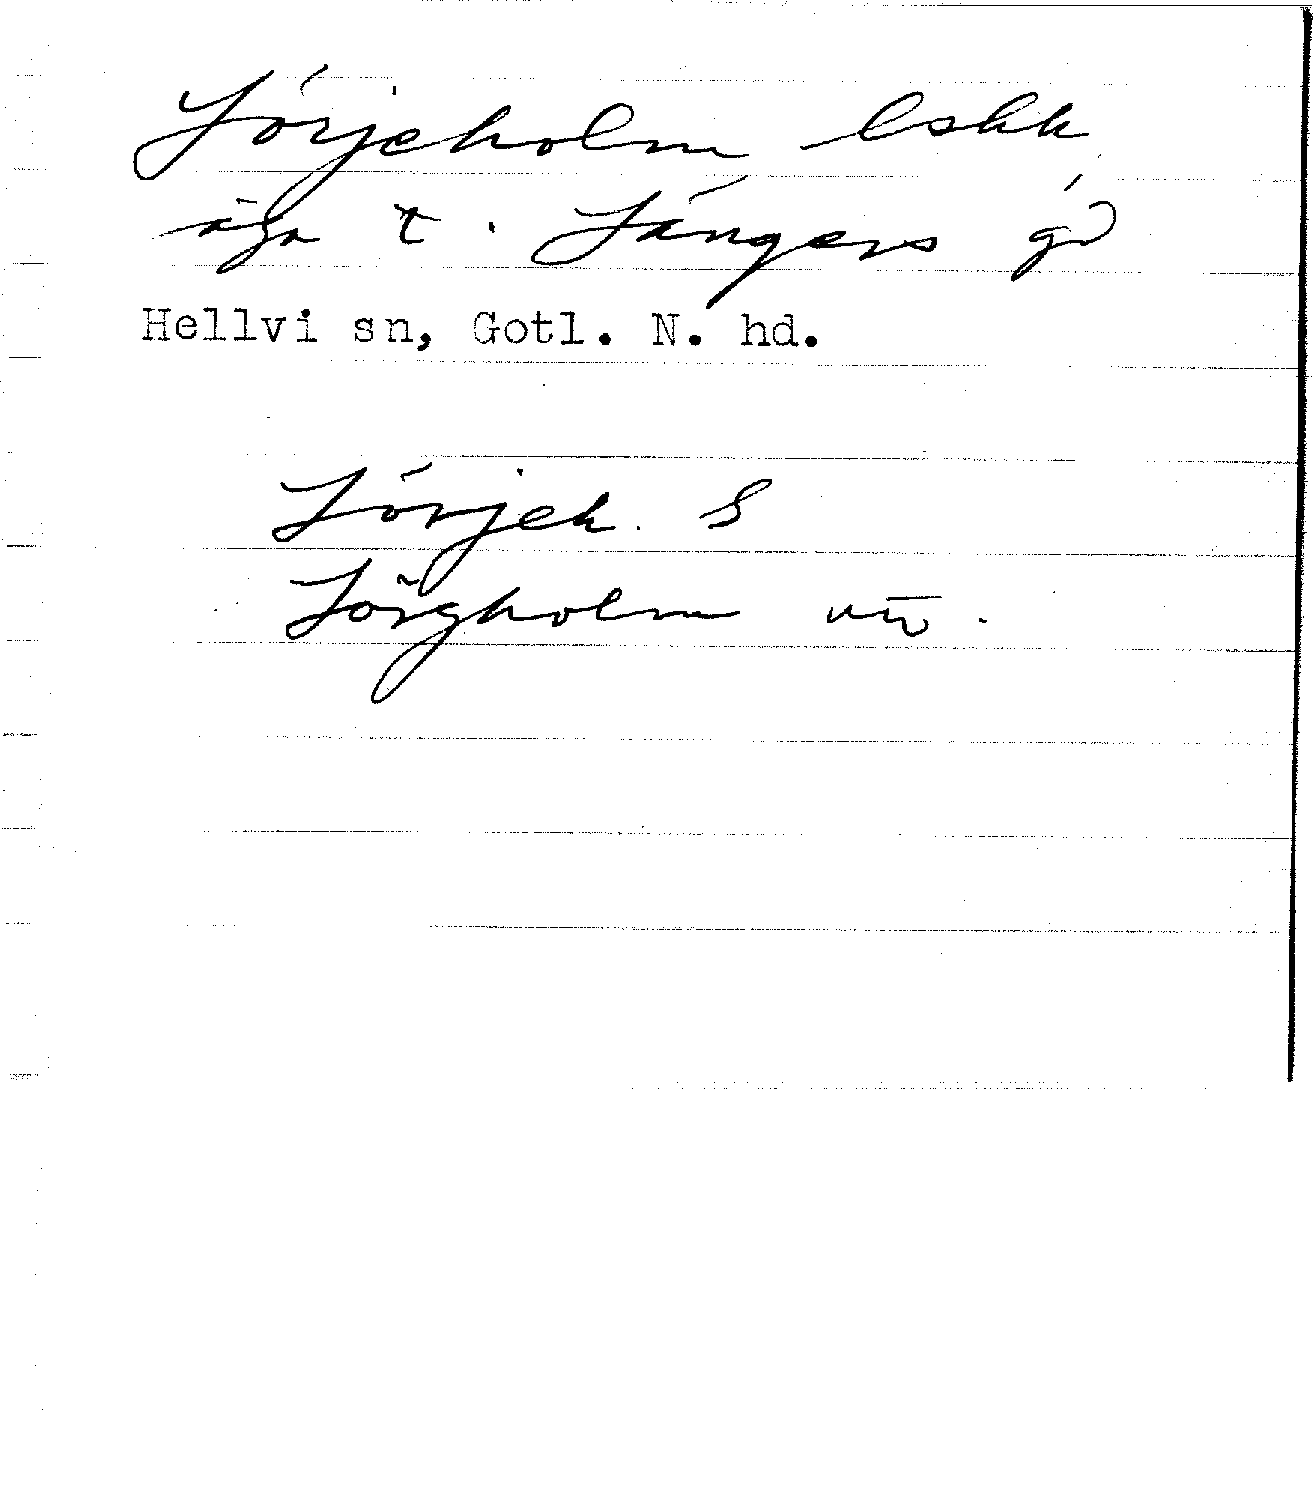 Sörjeholm lskk
äga t. Sängers gd
Hellvi sn, Gotl. N. hd.
Sörjeh. S
Sörgholm